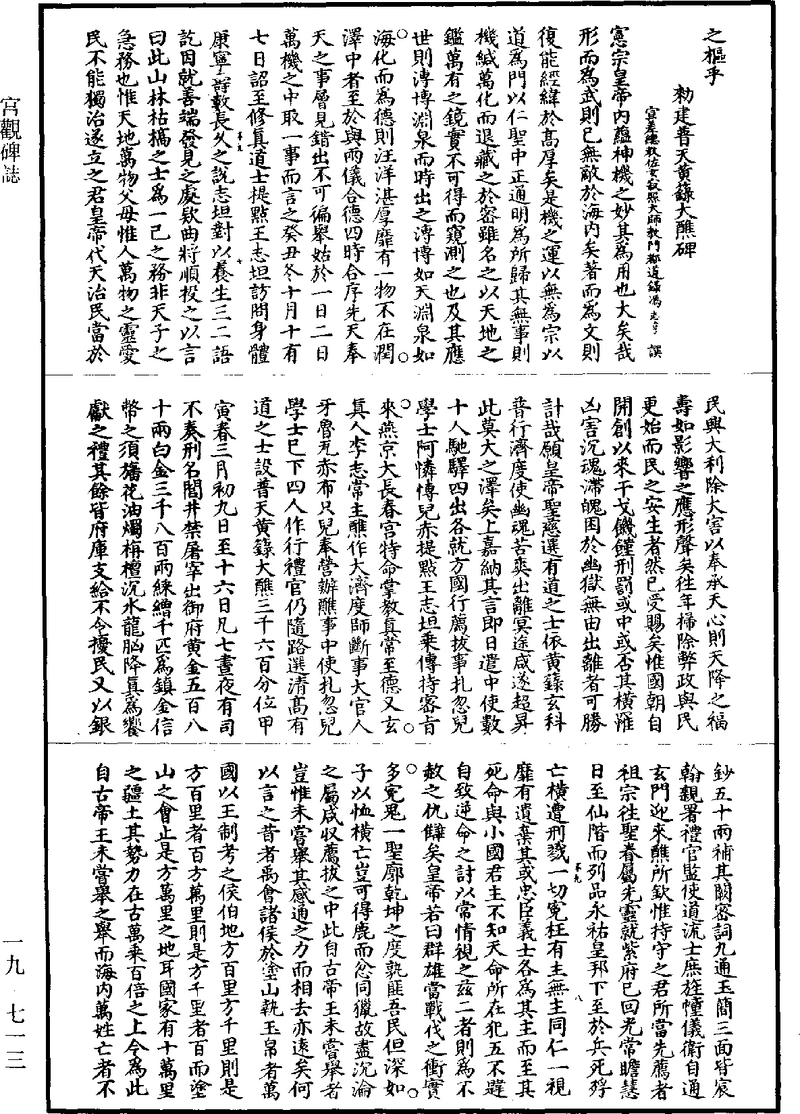 之樞乎
勑建普天黃籙大醮碑
宣差總教佐玄寂照大師教門都道錄馮志亨譔
憲宗皇帝內蘊神機之妙其為用也大矣哉
形而為武則已無敵於海內矣著而為文則
復能經緯於高厚矣是機之運以無為宗以
道為門以仁聖中正通明為所歸其無事則
機緘萬化而退藏之於密雖名之以天地之
鑑萬有之鏡實不可得而窺測之也及其應
世則溥博淵泉而時出之溥博如天淵泉如
海化而為德則汪洋湛厚靡有一物不在潤
澤中者至於與兩儀合德四時合序先天奉
天之事層見錯出不可徧舉姑於一日二日
萬機之中取一事而言之癸丑冬十月十有
七日詔至修真道士提點王志坦訪問身體
康寧壽數長久之說志坦對以養生三二語
訖因就善端發見之處欵曲將順投之以言
曰此山林枯槁之士為一己之務非天子之
急務也惟天地萬物父母惟人萬物之靈愛
民不能獨治遂立之君皇帝代天治民當於
民興大利除大害以奉承天心則天降之福
壽如影響之應形聲矣往年掃除弊政與民
更始而民之安生者然已受賜矣惟國朝自
開創以來干戈饑饉刑罰或中或否其橫罹
凶害沉魂滯魄困於幽獄無由出離者可勝
計哉願皇帝聖慈選有道之士依黃籙玄科
普行濟度使幽魂苦爽出離冥途咸遂超昇
此莫大之澤矣上嘉納其言即日遣中使數
十人馳驛四出各就方國行薦拔事扎忽兒
學士阿憐傳兒赤提點王志坦乘傳持密旨
來燕京大長春宮特命掌教真常至德又玄
真人李志常主醮作大濟度師斷事大官人
牙魯瓦赤布只兒奉營辦醮事中使扎忽兒
學士已下四人作行禮官仍隨路選清高有
道之士設普天黃籙大醮三千六百分位甲
寅春三月初九日至十六日凡七晝夜有司
不奏刑名闔井禁屠宰出御府黃金五百八
十兩白金三千八百兩綵繒千匹為鎮金信
幣之須旛花油燭栴檀沉水龍腦降真為饗
獻之禮其餘皆府庫支給不令擾民又以銀
鈔五十兩補其闕密詞九通玉簡三面皆宸
翰親署禮官監使道流士庶旌幢儀衛自通
玄門迎來醮所欽惟持守之君所當先薦者
祖宗往聖眷屬先靈就紫府已回光常瞻慧
日至仙階而列品永祐皇邦下至於兵死殍
亡橫遭刑戮一切冤枉有主無主同仁一視
靡有遺棄其或忠臣義士各為其主而至其
死命與小國君主不知天命所在犯五不韙
自致逆命之討以常情視之茲二者則為不
赦之仇讎矣皇帝若曰群雄當戰伐之衝實
多冤鬼一聖廓乾坤之度孰匪吾民但深如
子以恤橫亡豈可得鹿而忿同獵故盡沉淪
之屬咸収薦拔之中此自古帝王未嘗舉者
豈惟未嘗舉其感通之力而相去亦遠矣何
以言之昔者禹會諸侯於塗山執玉帛者萬
國以王制考之侯伯地方百里方千里則是
方百里者百方萬里則是方千里者百而塗
山之會止是方萬里之地耳國家有十萬里
之疆土其勢力在古萬乘百倍之上今為此
自古帝王未嘗舉之舉而海内萬姓亡者不
宮觀碑誌
一九·七一三